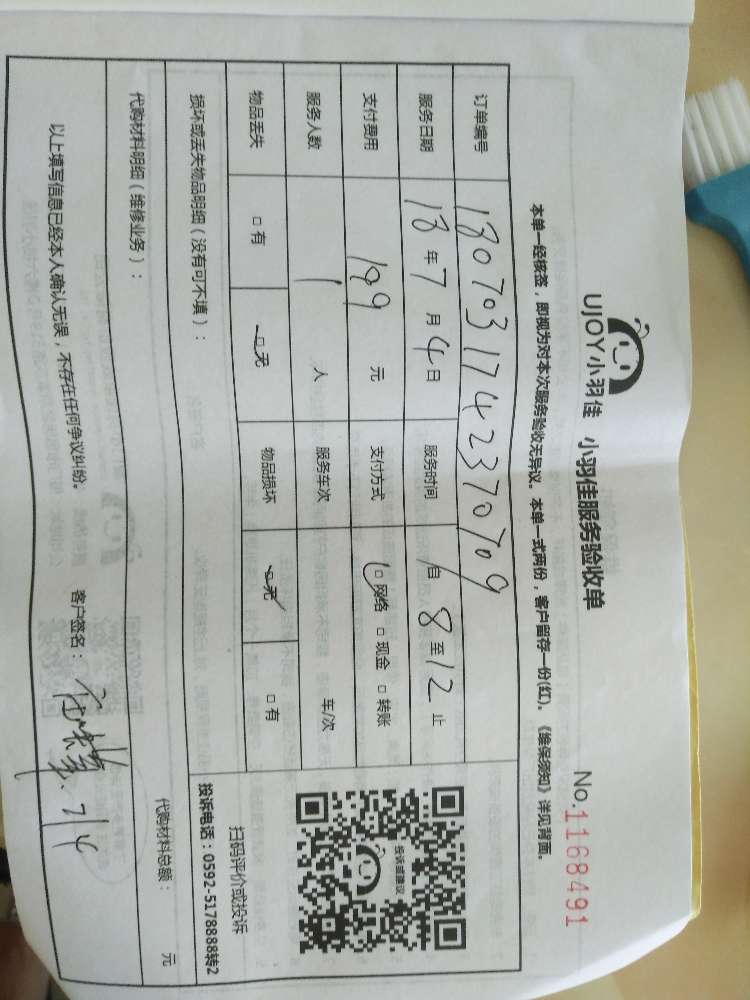 UJOY小羽佳 小羽佳服务验收单 No.1168491
本单一经核签，即视为对本次服务验收无异议。本单一式两份，客户留存一份(红)。《维保须知》详见背面。
订单编号 1807031742370709
服务日期 18年7月4日 服务时间 自8至12止
支付费用 199元 支付方式 □网络 □现金 □转账
服务人数 1人 服务车次 车/次
物品丢失 □有 □无 物品损坏 □无 □有
损坏或丢失物品明细（没有可不填）：
投诉或建议
扫码评价或投诉
投诉电话：0592-5178888转2
代购材料明细（维修业务）： 代购材料总额： 元
以上填写信息已经本人确认无误，不存在任何争议纠纷。 客户签名： 7/4